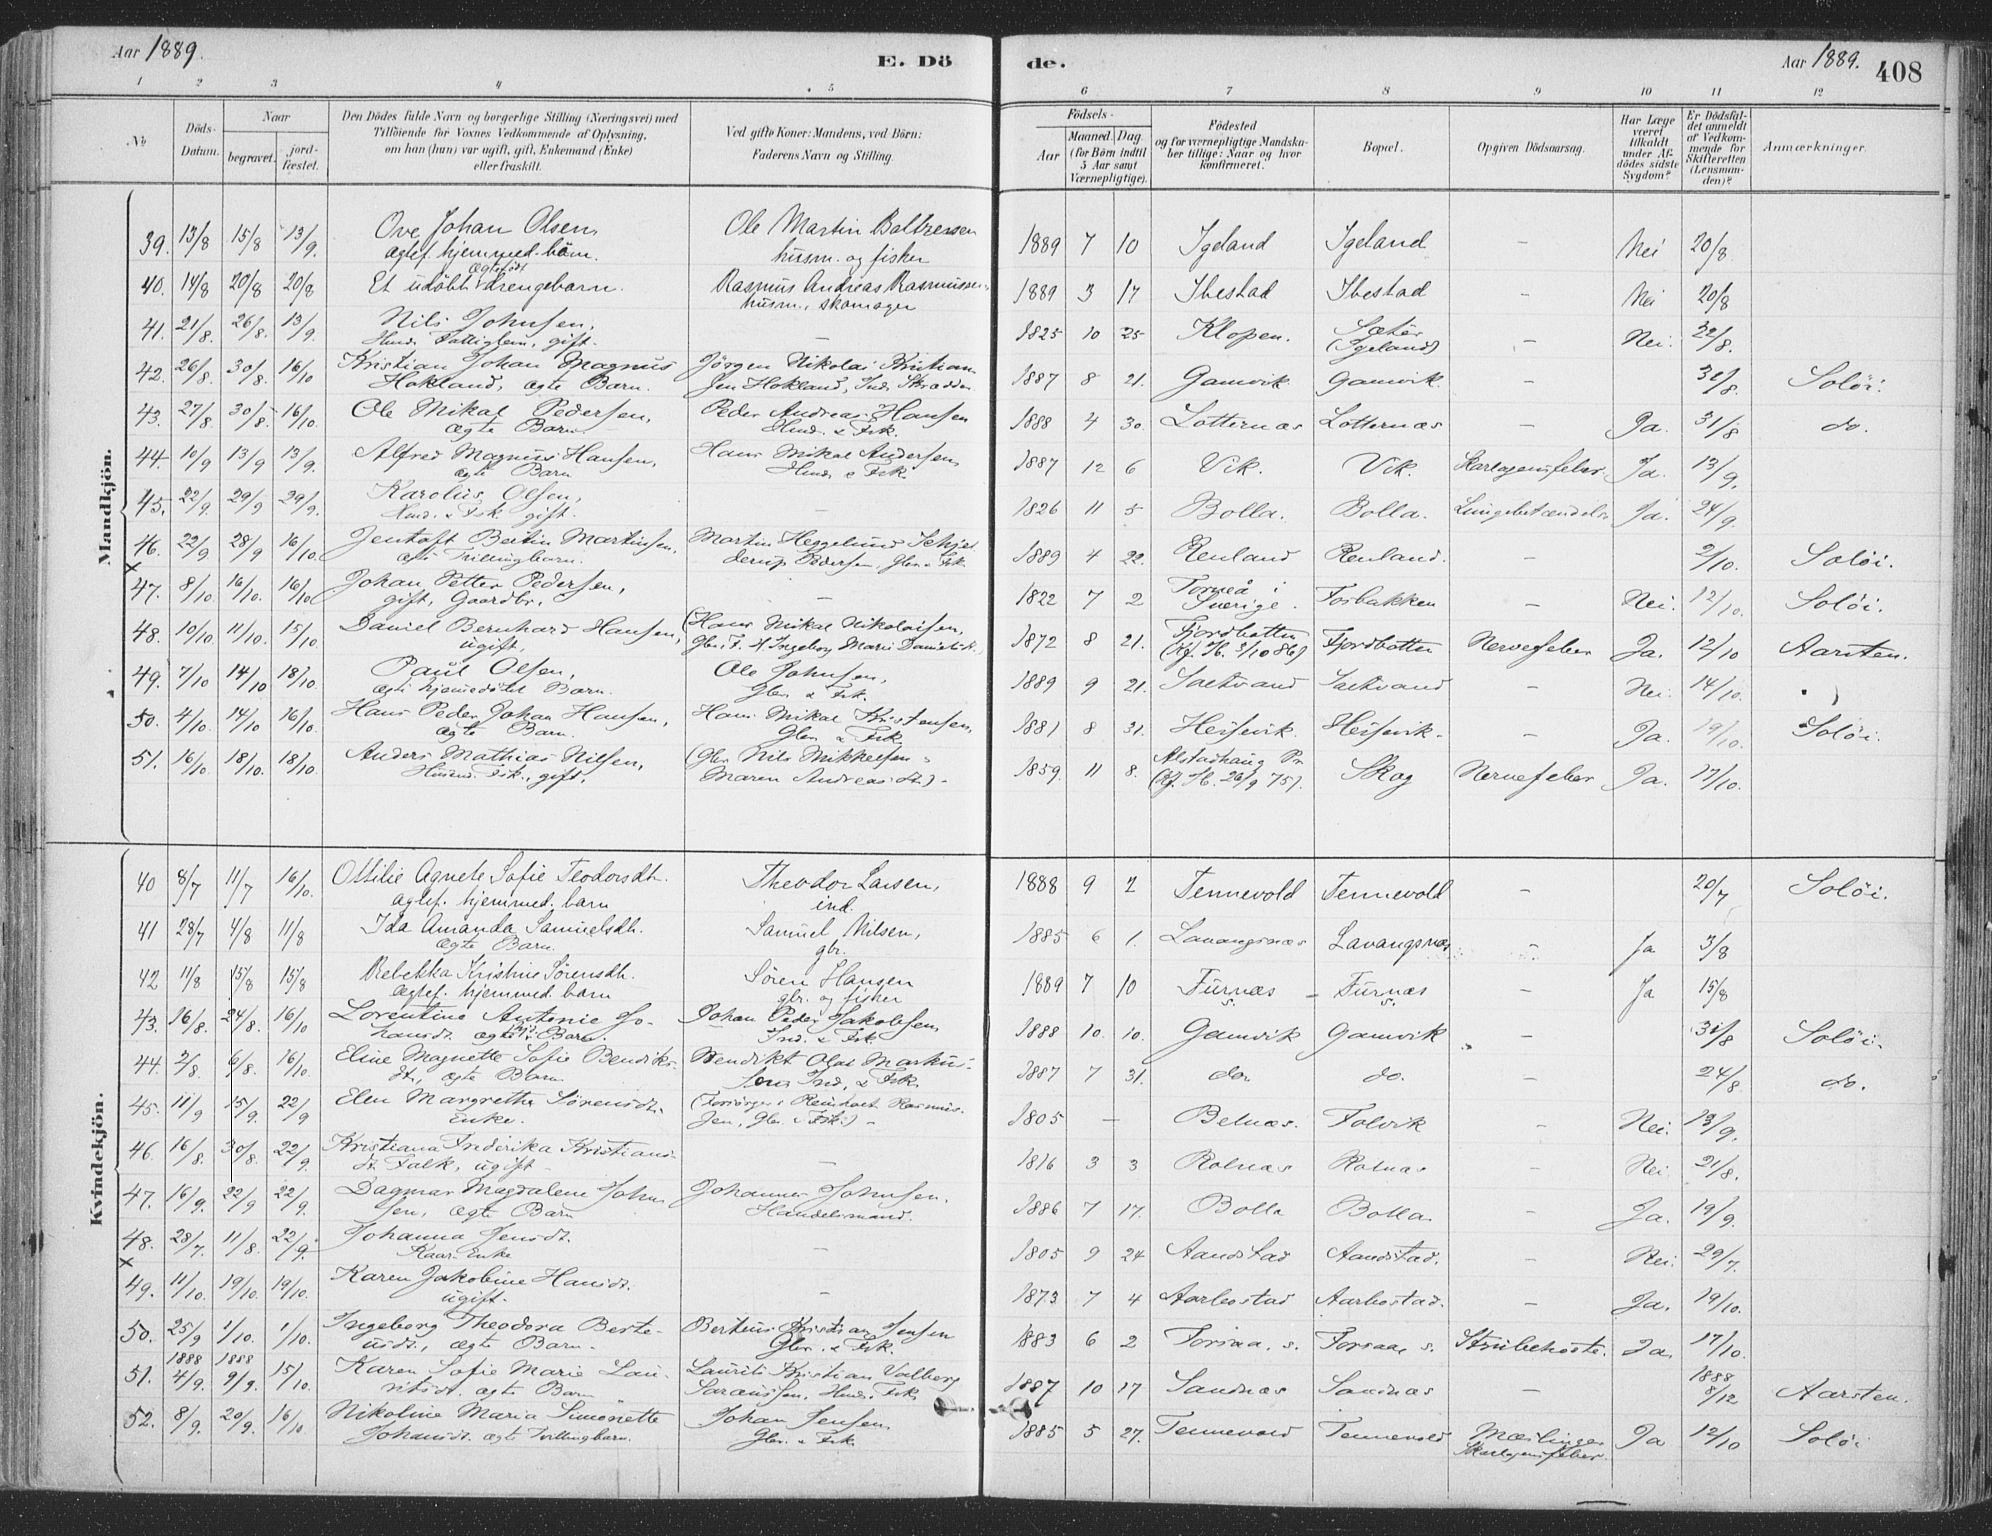 Aar 1889.
E. Dö de.
Aar 1889. 408
1 2 3 4 5 6 7 8 9 10 11 12
No
Döds-Datum.
Naar
begravet.
jord-fæstet.
Den Dödes fulde Navn og borgerlige Stilling (Næringsvei) med
Tilföiende for Voxnes Vedkommende af Oplysning,
om han (hun) var ugift, gift, Enkemand (Enke)
eller fraskilt.
Ved gifte Koner: Mandens, ved Börn:
Faderens Navn og Stilling.
Födsels-
Aar
Maaned. Dag.
(for Börn indtil
5 Aar samt
Værnepligtige).
Födested
og for værnepligtige Mandska-
ber tillige: Naar og hvor
konfirmeret.
Bopæl.
Opgiven Dödsaarsag.
Har Læge
været
tilkaldt
under Af-
dödes sidste
Sygdom?
Er Dödsfal-
det anmeldt
af Vedkom-
mende for
Skifteretten
(Lensman-
den)?
Anmærkninger.
Mandkjön.
39. 13/8 15/8 13/9. Ove Johan Olsen, Ole Martin Baltzersen 1889 7 10 Igeland Igeland - Nei 20/8.
ægtef. hjemmed. barn. husm. og fisker
40. 14/8 20/8 20/8 Et udöbt ægtefödt drengebarn. Rasmus Andreas Rasmussen, 1889 3 17 Ibestad Ibestad - Nei 20/8
husm., skomager
41. 21/8. 26/8. 13/9. Nils Johnsen, - 1825 10 25 Klopen. Sæter (Igeland) - Nei. 22/8.
Fattiglem, gift.
42. 26/8. 30/8. 16/10 Kristian Johan Magnus Jörgen Nikolai Kristian- 1887 8 21. Gamvik Gamvik. - 31/8 Solöi.
Hokland, ægte Barn. sen Hokland, Ind. Skrædder
43. 27/8 30/8. 16/10. Ole Mikal Pedersen, Peder Andreas Hansen 1888 4 30. Lotternæs Lotternæs - Ja. 31/8 do.
ægte Barn. Hmd. & Fsk.
44. 10/9 13/9 13/9. Alfred Magnus Hansen, Hans Mikal Andersen, 1887 12 6 Vik. Vik. Skarlagensfeber. Ja. 13/9.
ægte Barn Hmd. & Fsk.
45. 22/9. 29/9 29/9. Karolius Olsen, - 1826 11 5 Bolla. Bolla. Lungebetændelse Ja. 24/9.
Hmd. & Fsk. gift.
46. 22/9 28/9 16/10. Jentoft Bertin Martinsen, Martin Heggelund Schjel- 1889 4 22. Renland Renland. - 2/10. Solöi.
ægte Tvillingbarn. derup Pedersen, Gbr. & Fsk.
× 47. 8/10. 16/10. 16/10 Johan Petter Pedersen, - 1822 7 2 Torneå i Sverige. Forbakken - Nei. 12/10. Solöi.
gift, Gaardbr.
48. 10/10. 11/10. 15/10 Daniel Bernhard Hansen, (Hans Mikal Nikolaisen, 1872 8 21. Fjordbotten Fjordbotten Nervefeber Ja. 12/10 Aarsten.
ugift, Gbr. & F. & Ingeborg Marie Danielsdt.) (Kf. Ib. 3/10 86)
49. 7/10 14/10 18/10. Paul Olsen, Ole Johnsen, 1889 9 21. Saltvand Saltvand - Nei. 14/10.
ægte hjemmedöbt Barn. Gbr. & Fsk.
50. 4/10. 14/10 16/10 Hans Peder Johan Hansen, Hans Mikal Kristensen, 1881 8 31. Heisevik. Heisevik. - Ja. 19/10. Solöi.
ægte Barn. Gbr. & Fsk
51. 16/10. 18/10. 18/10. Anders Mathias Nilsen, (Gbr. Nils Mikkelsen & 1859. 11 8. Alstadhaug Pr Skog Nervefeber Ja. 17/10.
Husmd. Fsk., gift. Maren Andreasdt.) - (Kf. Ib. 26/9 75).
Kvindekjön.
40 8/7 11/7 16/10. Ottilie Agnete Sofie Teodorsdtr. Theodor Larsen, 1888 9 2 Tennevold Tennevold - 20/7 Solöi.
ægtef. hjemmed. barn ind.
41 28/7 4/8 11/8 Ida Amanda Samuelsdtr. Samuel Nilsen, 1885 6 1. Lavangsnæs Lavangsnæs - Ja 3/8
ægte Barn. gbr.
42 11/8 15/8 15/8 Rebekka Kristine Sörensdtr. Sören Hansen 1889 7 10 Furnæs Furnæs - Ja 15/8
ægtef. hjemmed. barn gbr. og fisker
43. 16/8. 24/8. 16/10 Lorentine Antonie Jo- Johan Peder Jakobsen, 1888 10. 10. Gamvik Gamvik - 31/8 Solöi.
hansdt. ægte Barn. Ind. & Fsk.
44. 2/8. 6/8. 16/10. Eline Magnette Sofie Bendiks- Bendikt Olai Markus- 1887 7 31. do. do. - 24/8 do.
dt., ægte Barn sens Ind. & Fsk.
45. 11/9 15/9. 22/9 Elen Margrethe Sörensdt. (Forsörges: Reinholt Rasmus- 1805 - Belnæs. Folvik - Nei. 13/9.
Enke. sen, Gbr. & Fsk.) -
46. 16/8. 30/8. 22/9. Kristiana Frederika Kristians- - 1816 3 3 Rolnæs Rolnæs - Nei 21/8.
dt. Falk, ugift -
47. 16/9. 22/9 22/9. Dagmar Magdalene John- Johannes Johnsen. 1886 7 17. Bolla Bolla - Ja. 19/9.
sen, ægte Barn Handelsmand.
48. 28/7. 11/8. 22/9. Johanna Jensdt. - 1805 9 24 Aandstad Aandstad. - Nei. 29/7.
Kaar Enke
× 49. 11/10. 19/10. 19/10. Karen Jakobine Hansdt. - 1873 7 4 Aarbostad Aarbostad. - Ja. 19/10.
ugift.
50. 25/9 1/10. 1/10. Ingeborg Theodora Berte- Berteus Kristian Jensen 1883 6 2 Forsaa, s. Forsaa, s. Strubehoste. Ja. 17/10.
usdt., ægte Barn. Gbr. & Fsk.
51. 1888 4/9. 1888 9/9. 15/10 Karen Sofie Marie Lau- Laurits Kristian Valberg 1887 10 17 Sandnæs Sandnæs - 1888 8/12 Aarsten.
ritsdt. ægte Barn Fsk.
52. 8/9. 20/9. 16/10 Nikoline Maria Simonette Johan Jensen, 1885 5 27. Tennevold Tennevold Mæslinger Ja 12/10 Solöi
Johansdt. ægte Tvillingbarn. Gbr. & Fsk. Skarlagensfeber.